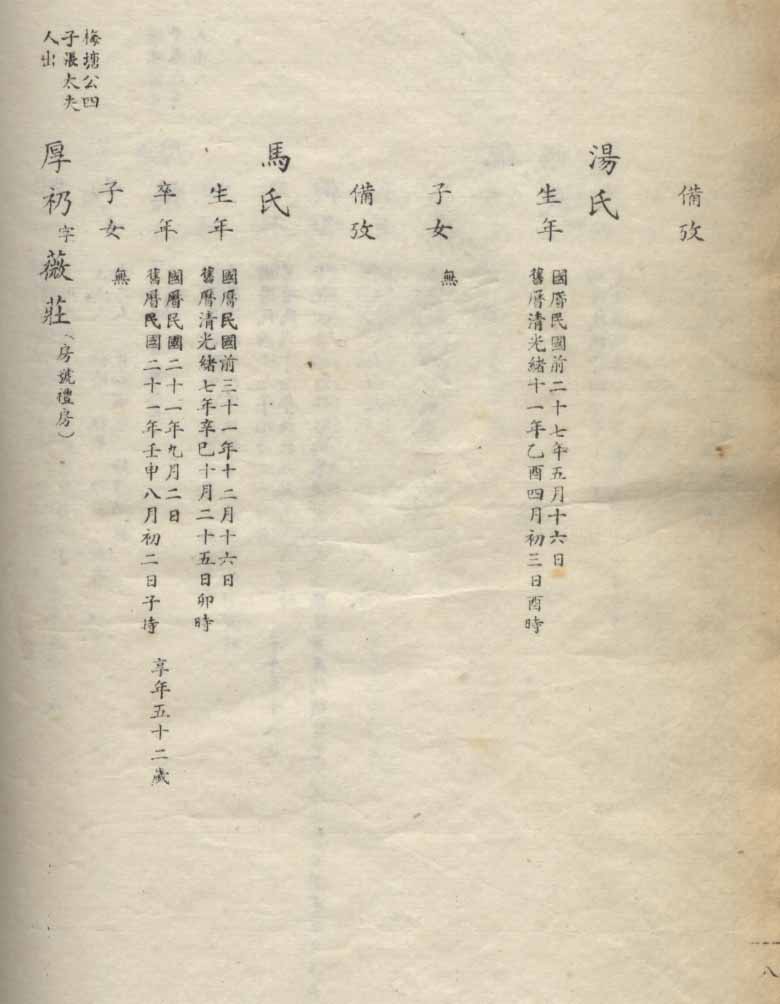 備攷
湯氏
生年
國曆民國前二十七年五月十六日
舊曆清光緒十一年乙酉四月初三日酉時
子女
無
備攷
馬氏
生年
國曆民國前三十一年十二月十六日
舊曆清光緒七年辛巳十月二十五日卯時
卒年
國曆民國二十一年九月二日
舊曆民國二十一年壬申八月初二日子時 享年五十二歲
子女
無
梅塘公四
子張太夫
人出
厚礽字薇莊（房號禮房）
八